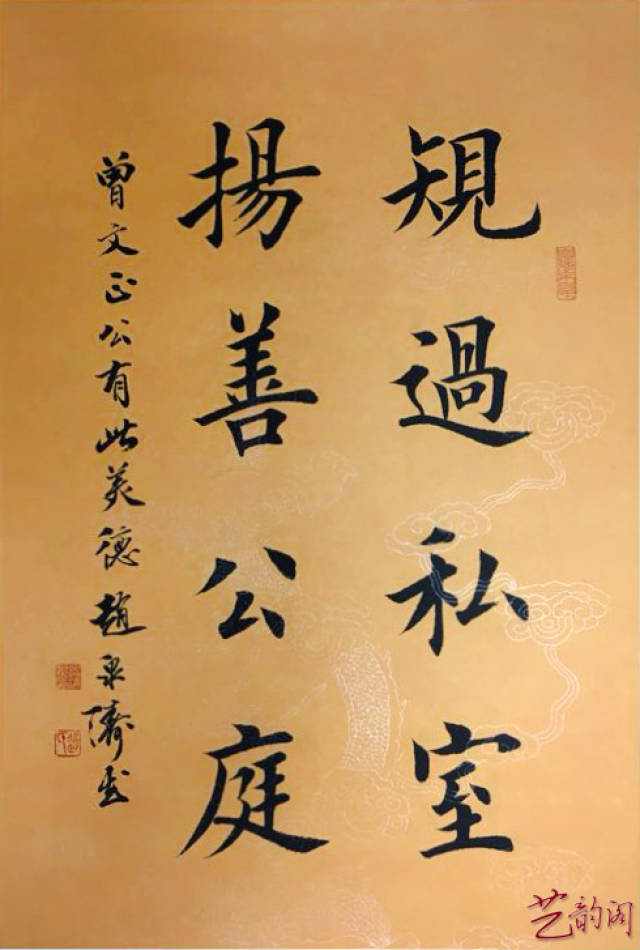 規過私室
揚善公庭
曾文正公有此美德趙泉濤書
艺韵阁